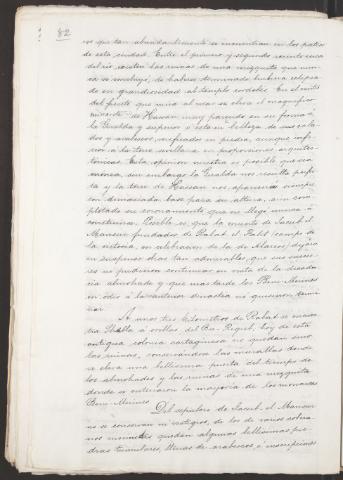 82
ros que tan abundantemente se encuentran en los patios
de esta ciudad. Entre el primero y segundo recinto cerca
del río, existen las ruinas de una mezquita que nun-
ca se concluyó; de haberse terminado hubiera eclipsa-
do en grandiosidad al templo cordobés. En el centro
del frente que mira al mar se eleva el magnífico
minarete de Hassan muy parecido en su forma a
la Giralda y superior a esta en belleza de sus cala-
dos y arabescos edificados en piedra, aunque infe-
rior a la torre sevillana en proporciones arquitec-
tónicas. Esta opinion nuestra es posible que sea
erronea, sin embargo la Giralda nos resulta perfec-
ta y la torre de Hassan nos aparecía siempre
con demasiada base para su altura, aun com-
pletado su coronamiento que no llegó nunca á
construirse. Posible es, que la muerte de Jacub el
Mansur fundador de Rabat el Fath (campo de
la victoria, en celebracion de la de Alarcos) dejara
en suspenso obras tan admirables, que sus suceso-
res no pudieron continuar en vista de la decaden-
cia almohade y que mas tarde los Beni-Merines
en odio á la anterior dinastía no quisieron termi-
nar.
A unos tres kilometros de Rabat se encuen-
tra Shella á orillas del Bu-Regreb, hoy de esta
antigua colonia cartaginesa no quedan sino
las ruinas, conservandose las murallas donde
se eleva una bellisima puerta del tiempo de
los almohades y las ruinas de una mezquita
donde se enterraron la mayoría de los monarcas
Beni-Merines.
Del sepulcro de Jacub el Mansur
no se conservan ni vestigios, de los de varios sobera-
nos merinides quedan algunas bellísimas pie-
dras tumulares, llenas de arabescos é inscripciones